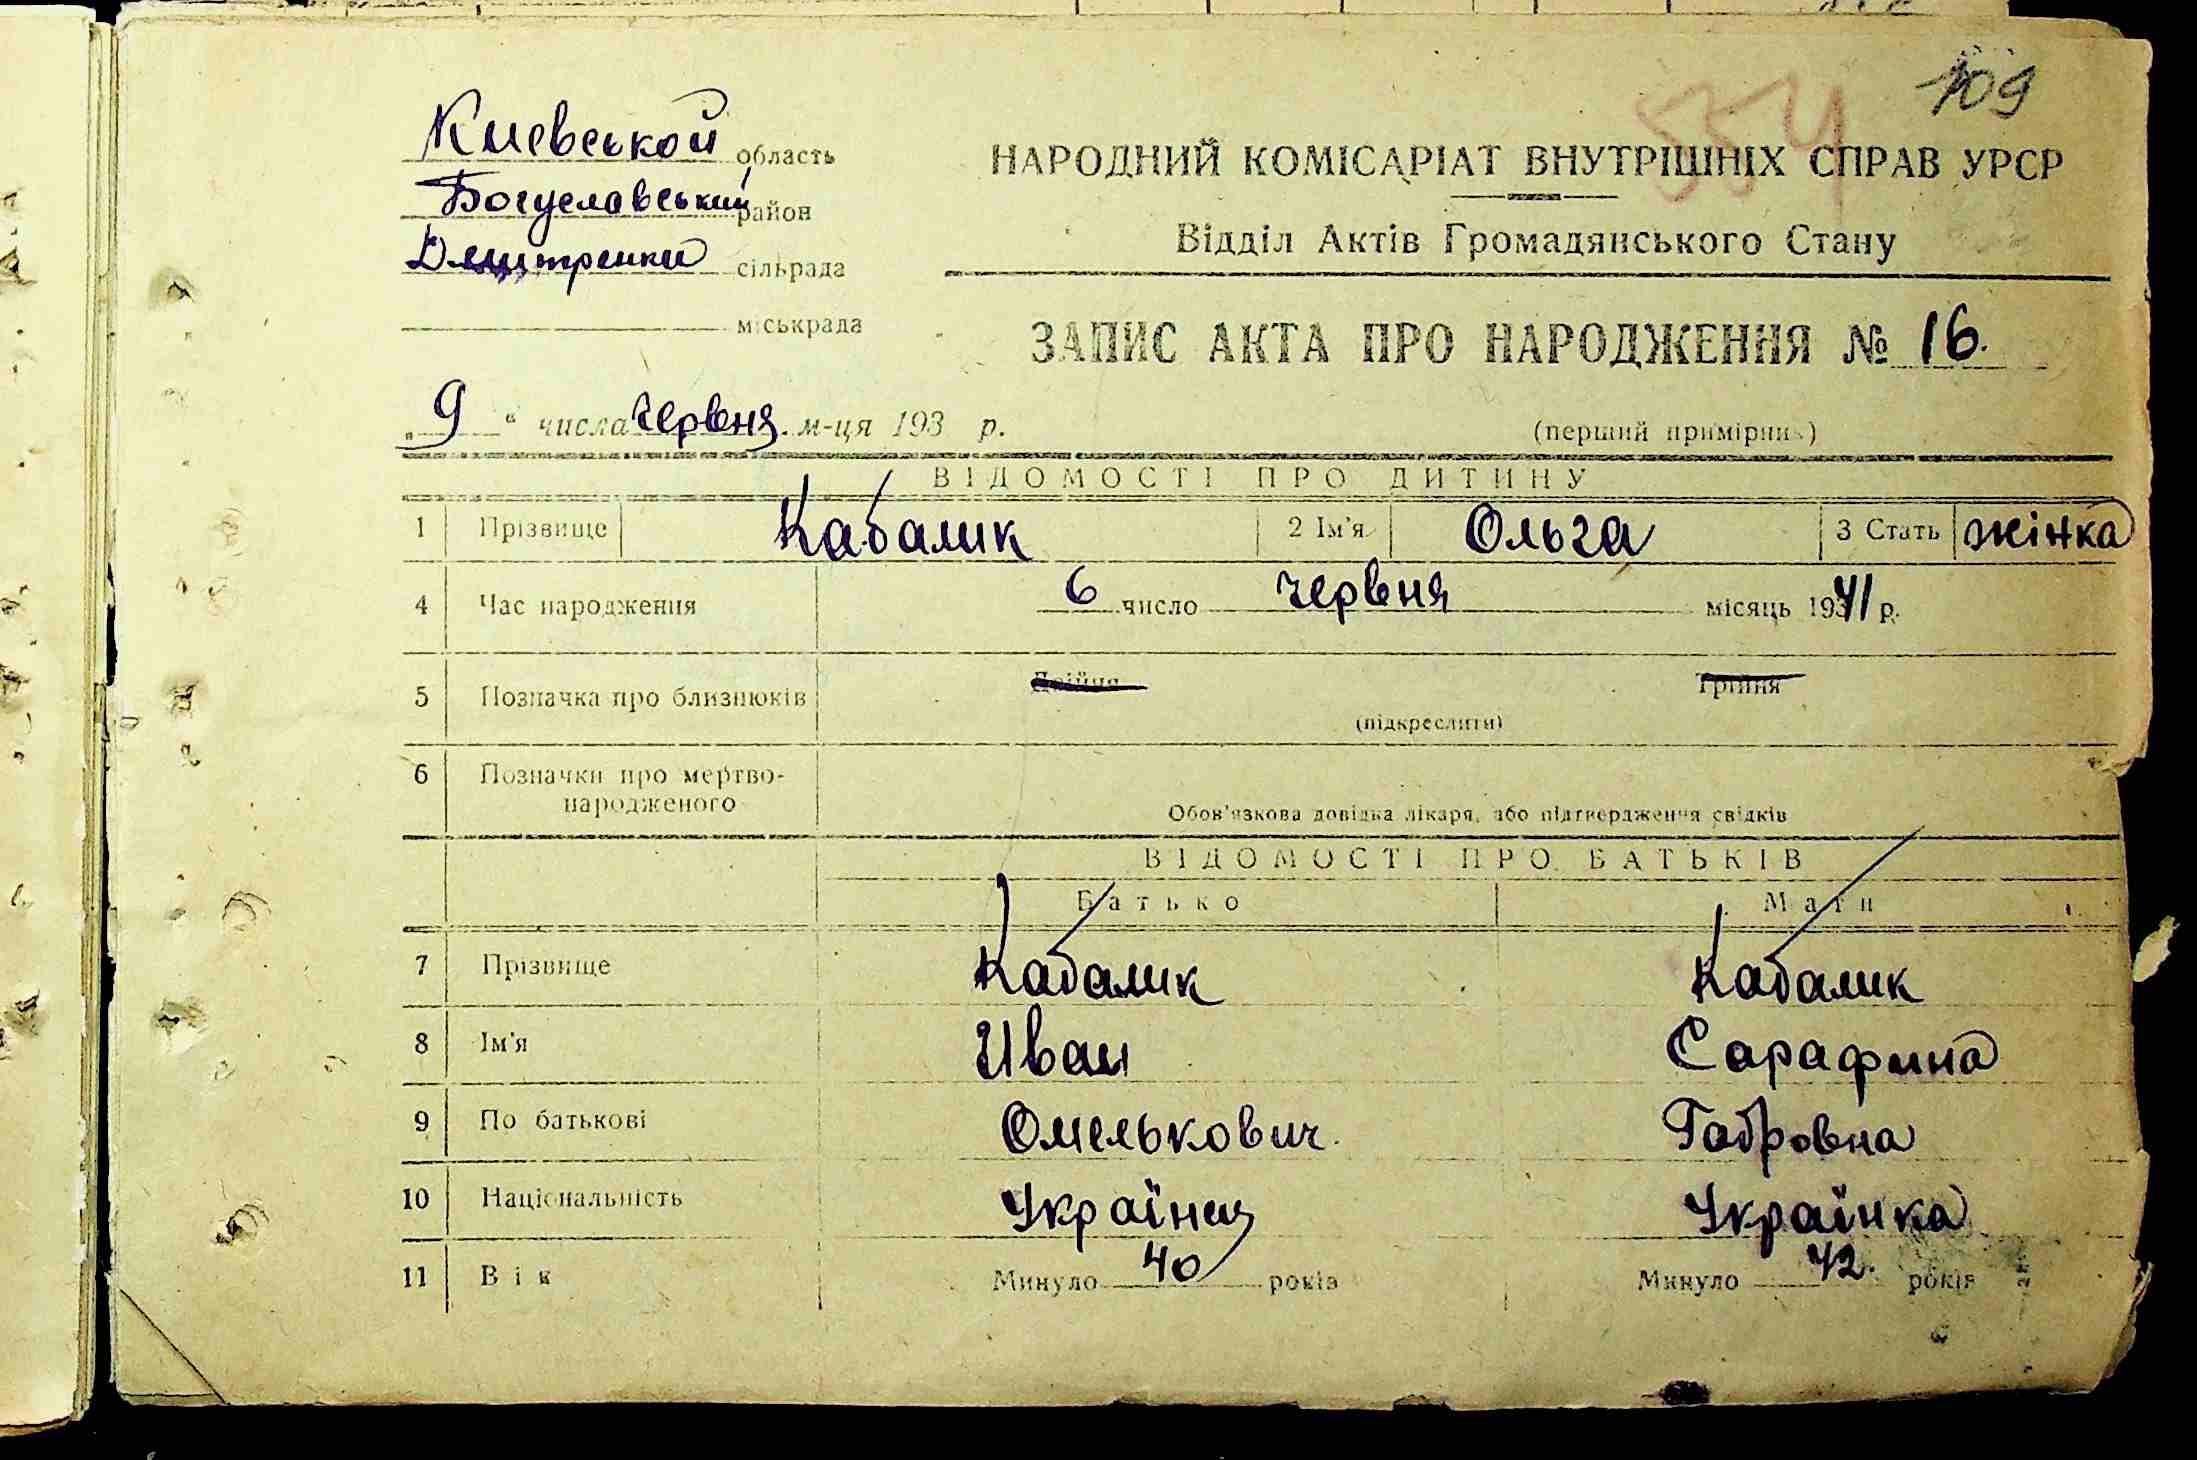 109
554
Киевськой область
Богуславський район
Дмитренки сільрада
міськрада
НАРОДНИЙ КОМІСАРІАТ ВНУТРІШНІХ СПРАВ УРСР
Відділ Актів Громадянського Стану
ЗАПИС АКТА ПРО НАРОДЖЕННЯ № 16.
„ 9 “ числа червня. м-ця 193 р.
(перший примірник)
ВІДОМОСТІ ПРО ДИТИНУ
1 Прізвище Кабалик 2 Ім'я Ольга 3 Стать жінка
4 Час народження 6 число червня місяць 1941 р.
5 Позначка про близнюків Двійня Трійня
(підкреслити)
6 Позначки про мертво-
народженого
Обов'язкова довідка лікаря, або підтвердження свідків
ВІДОМОСТІ ПРО БАТЬКІВ
Батько Мати
7 Прізвище Кабалик Кабалик
8 Ім'я Иван Сарафина
9 По батькові Омелькович. Габровна
10 Національність Українец Українка
11 Вік Минуло 40 років Минуло 42. років